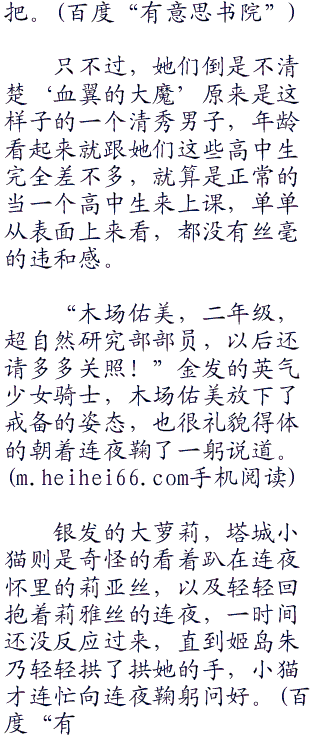 把。(百度“有意思书院”)
只不过，她们倒是不清
楚‘血翼的大魔’原来是这
样子的一个清秀男子，年龄
看起来就跟她们这些高中生
完全差不多，就算是正常的
当一个高中生来上课，单单
从表面上来看，都没有丝毫
的违和感。
“木场佑美，二年级，
超自然研究部部员，以后还
请多多关照！”金发的英气
少女骑士，木场佑美放下了
戒备的姿态，也很礼貌得体
的朝着连夜鞠了一躬说道。
(m.heihei66.com手机阅读)
银发的大萝莉，塔城小
猫则是奇怪的看着趴在连夜
怀里的莉亚丝，以及轻轻回
抱着莉雅丝的连夜，一时间
还没反应过来，直到姬岛朱
乃轻轻拱了拱她的手，小猫
才连忙向连夜鞠躬问好。(百
度“有